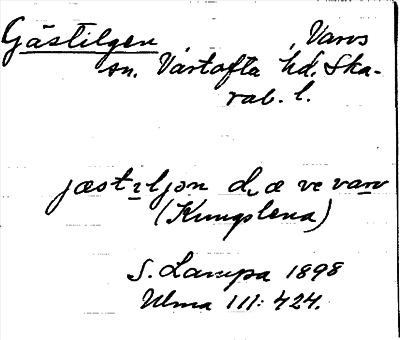 Gästilgen, Varvs
sn. Vartofta hd. Ska-
rab. l.
jæstɩljən d, æ ve varv
(Kungslena)
S. Lampa 1898
Ulma 111: 424.